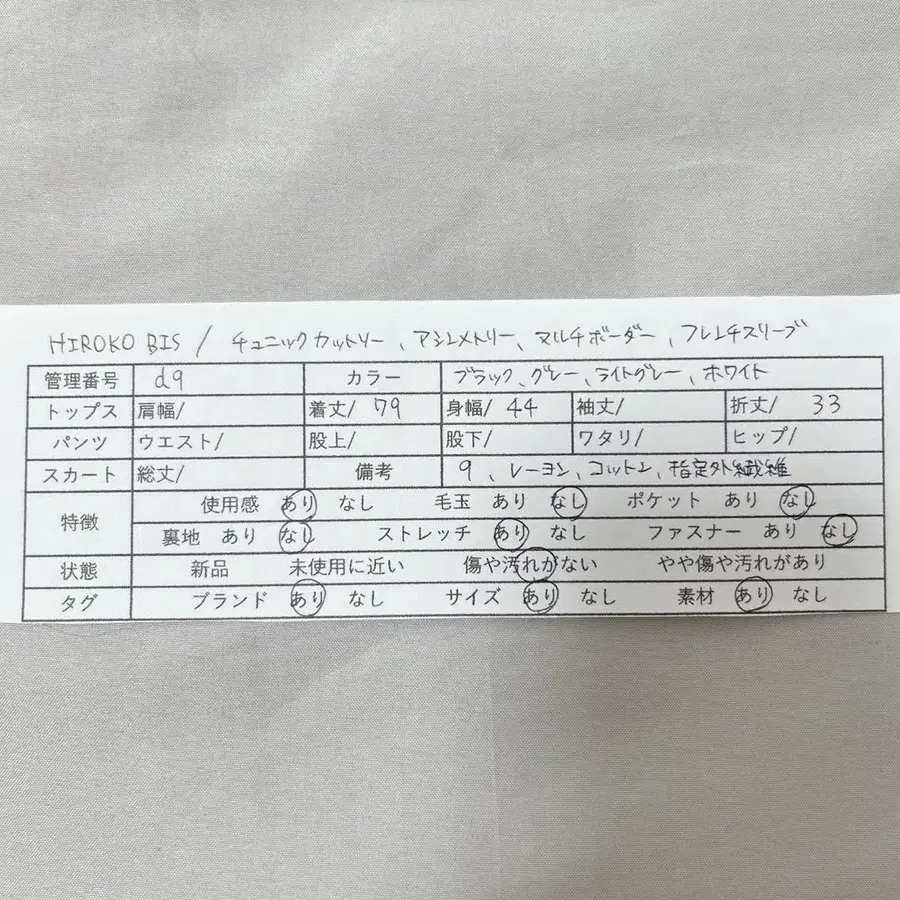 HIROKO BIS / チュニックカットソー、アシンメトリー、マルチボーダー、フレンチスリーブ
管理番号 d9 カラー ブラック、グレー、ライトグレー、ホワイト
トップス 肩幅/ 着丈/ 79 身幅/ 44 袖丈/ 裄丈/ 33
パンツ ウエスト/ 股上/ 股下/ ワタリ/ ヒップ/
スカート 総丈/ 備考 9、レーヨン、コットン、指定外繊維
特徴 使用感 あり なし 毛玉 あり なし ポケット あり なし
裏地 あり なし ストレッチ あり なし ファスナー あり なし
状態 新品 未使用に近い 傷や汚れがない やや傷や汚れがあり
タグ ブランド あり なし サイズ あり なし 素材 あり なし